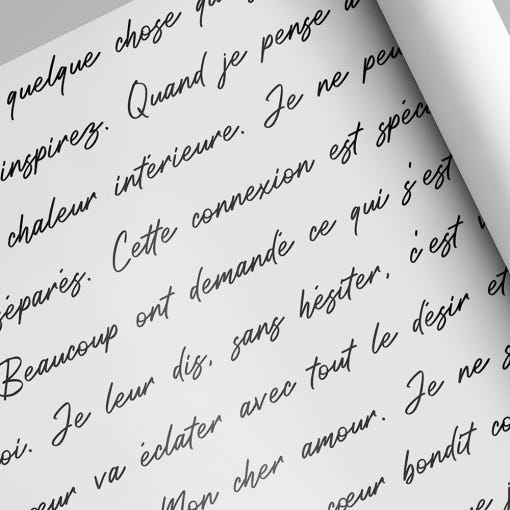 quelque chose
inspirez. Quand je pense
chaleur intérieure. Je ne
séparés. Cette connexion est
Beaucoup ont demandé ce qui s'est
Je leur dis, sans hésiter, c'est
va éclater avec tout le désir et
Mon cher amour. Je ne
bondit